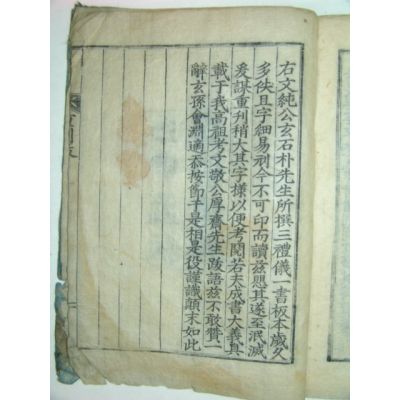 右文純公玄石朴先生所撰三禮儀一書板本歲久
多佚且字細易刓今不可印而讀玆懲其遂至泯滅
爰謀重刊稍大其字樣以便考閱若夫成書大義具
載于我高祖考文敬公厚齋先生跋語玆不敢贊一
辭玄孫會淵適忝按節于是相是役謹識顛末如此